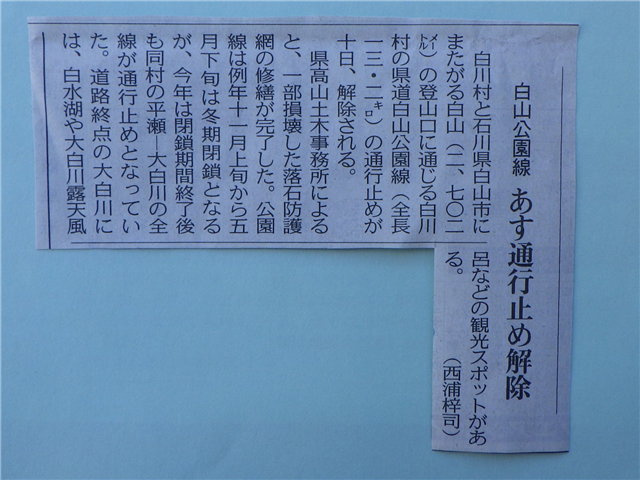 白山公園線 あす通行止め解除
白川村と石川県白山市に
またがる白山（二、七〇二
メートル）の登山口に通じる白川
村の県道白山公園線（全長
一三・二キロ）の通行止めが
十日、解除される。
県高山土木事務所による
と、一部損壊した落石防護
網の修繕が完了した。公園
線は例年十一月上旬から五
月下旬は冬期閉鎖となる
が、今年は閉鎖期間終了後
も同村の平瀬―大白川の全
線が通行止めとなってい
た。道路終点の大白川に
は、白水湖や大白川露天風
呂などの観光スポットがあ
る。
（西浦梓司）